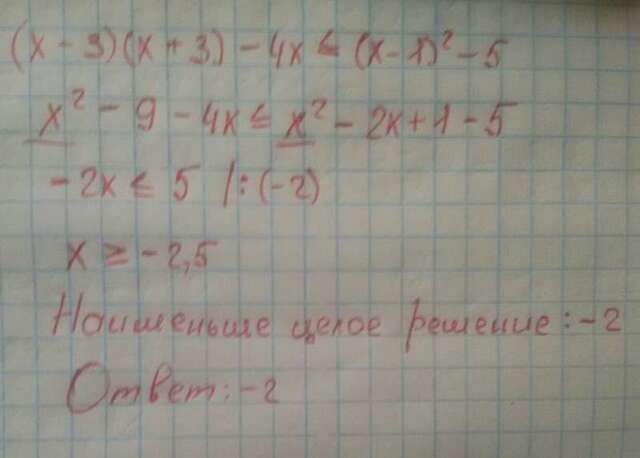 (x - 3)(x + 3) - 4x ≤ (x - 1)² - 5
x² - 9 - 4x ≤ x² - 2x + 1 - 5
-2x ≤ 5 |:(-2)
x ≥ -2,5
Наименьше целое решение: -2
Ответ: -2